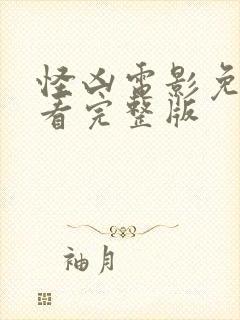 怪凶电影免
看完整版
袖月